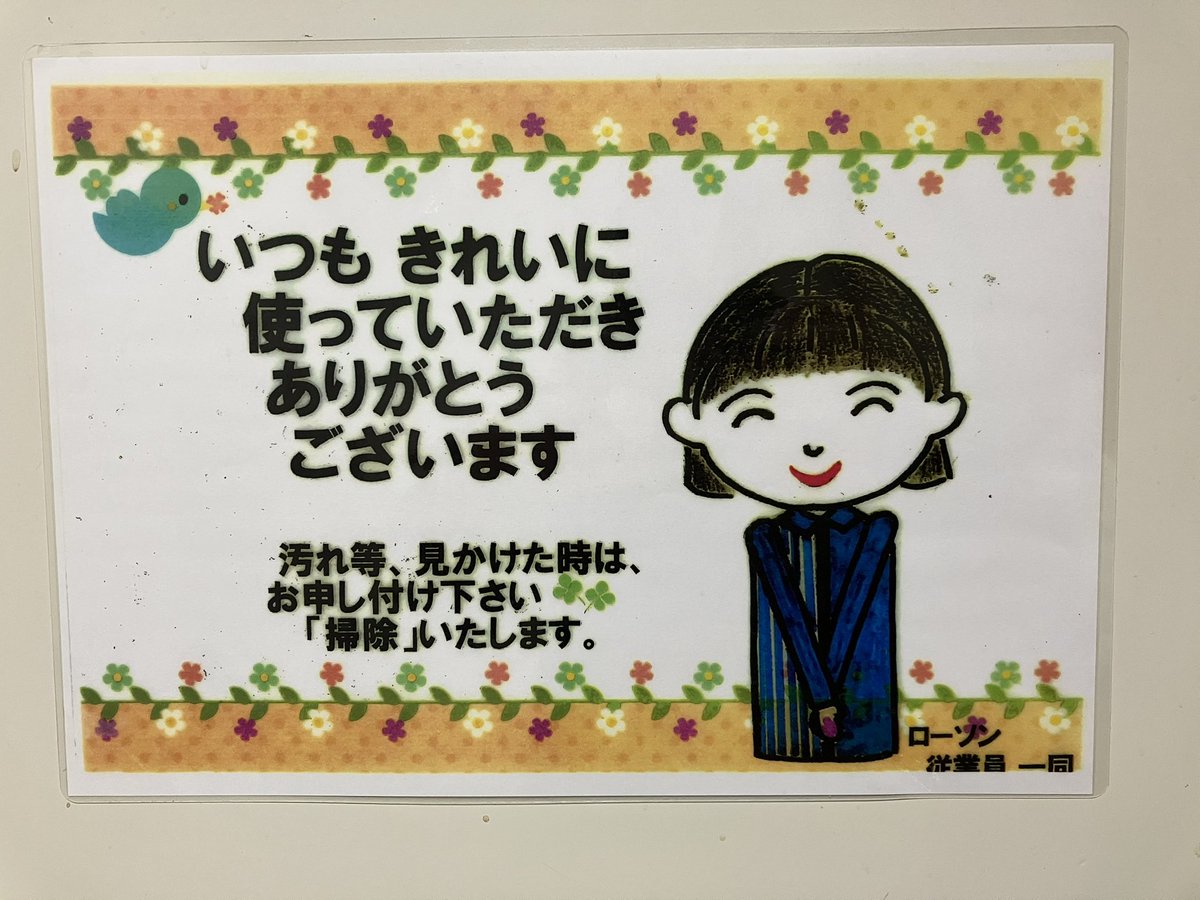 いつも きれいに
使っていただき
ありがとう
ございます
汚れ等、見かけた時は、
お申し付け下さい
「掃除」いたします。
ローソン
従業員 一同